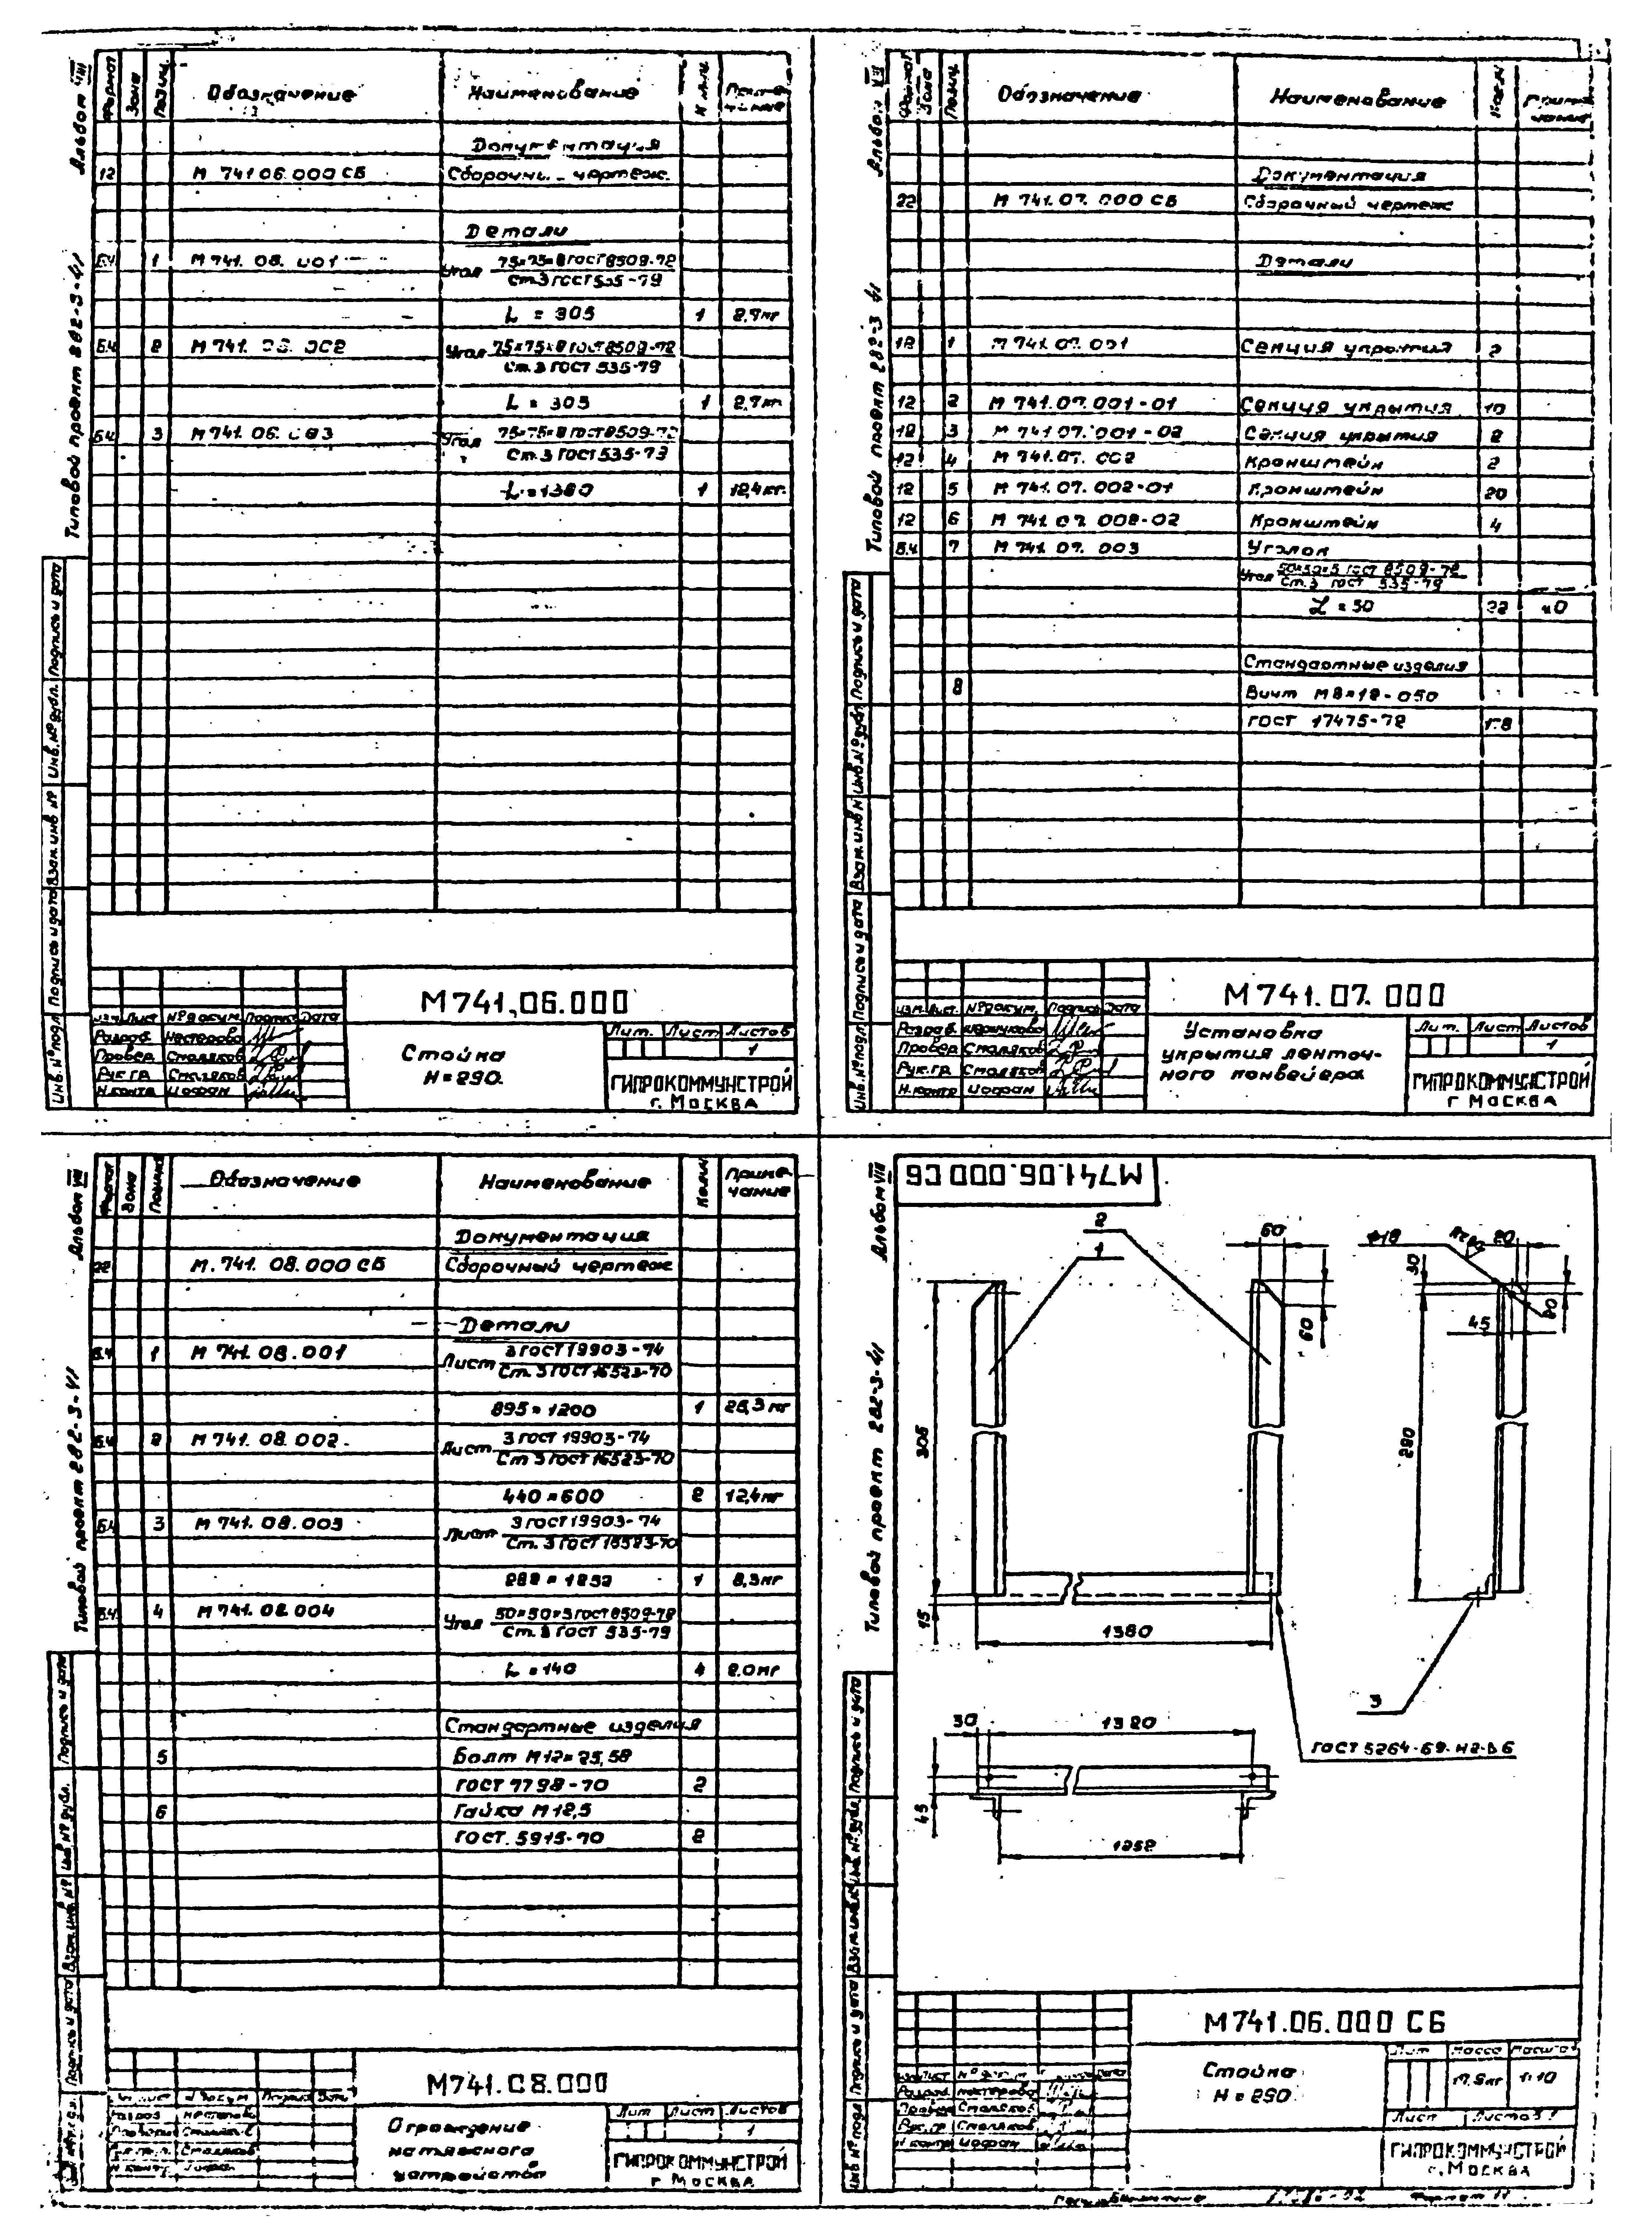 Альбом VIII
Типовой проект 282-3-41
Формат Зона Позиц. Обозначение Наименование Кол. Примечание
Документация
12 М 741 06.000 СБ Сборочный чертеж
Детали
Б.Ч 1 М 741. 06. 001 Угол 75×75×8 ГОСТ 8509-72
Ст.3 ГОСТ 535-79
L = 305 1 2,7кг
Б.Ч 2 М 741. 06. 002 Угол 75×75×8 ГОСТ 8509-72
Ст. 3 ГОСТ 535-79
L = 305 1 2,7кг
Б.Ч 3 М 741. 06. 003 Угол 75×75×8 ГОСТ 8509-72
Ст. 3 ГОСТ 535-79
L = 1380 1 12,4кг.
Инв.№подл Подпись и дата Взам.инв № Инв.№ дубл. Подпись и дата
М741.06.000
Изм Лист № докум Подпись Дата
Разраб. Нестерова
Провер Смоляков
Рук.гр. Смоляков
Н.контр Иофан
Стойка
Н=290.
Лит. Лист Листов
1
ГИПРОКОММУНСТРОЙ
г. МОСКВА
Альбом VIII
Типовой проект 282-3 41
Формат Зона Позиц Обозначение Наименование Кол. Примечание
Документация
22 М 741.07.000 СБ Сборочный чертеж
Детали
12 1 М 741.07.001 Секция укрытия 2
12 2 М 741.07.001-01 Секция укрытия 10
12 3 М 741 07.001-02 Секция укрытия 2
12 4 М 741.07.002 Кронштейн 2
12 5 М 741.07.002-01 Кронштейн 20
12 6 М 741.07.002-02 Кронштейн 4
Б.Ч. 7 М 741. 07. 003 Уголок
Угол 50×50×5 ГОСТ 8509-72
Ст.3 ГОСТ 535-79
L = 50 22
Стандартные изделия
8 Винт М8×18-050
ГОСТ 17475-72
Инв.№подл Подпись и дата Взам.инв.№ Инв.№ дубл Подпись и дата
М741.07.000
Изм. Лист. № докум. Подпись Дата
Разраб.
Провер Смоляков
Рук.гр. Смоляков
Н.контр Иофан
Установка
укрытия ленточ-
ного конвейера
Лит. Лист Листов
1
ГИПРОКОММУНСТРОЙ
г МОСКВА
Альбом VIII
Типовой проект 282-3-41
Формат Зона Позиц Обозначение Наименование Кол. Приме-
чание
Документация
22 М. 741. 08.000 СБ Сборочный чертеж
Детали
Б.Ч 1 М 741. 08. 001 Лист 3 ГОСТ 19903-74
Ст. 3 ГОСТ 16523-70
895×1200 1 25,3 кг
Б.Ч 2 М 741. 08. 002 Лист 3 ГОСТ 19903-74
Ст 3 ГОСТ 16523-70
440×600 2 12,4кг
Б.Ч 3 М 741. 08. 003 Лист 3 ГОСТ 19903-74
Ст. 3 ГОСТ 16523-70
282×1252 1 8,3кг
Б.Ч. 4 М 741. 08 004 Угол 50×50×5 ГОСТ 8509-72
Ст. 3 ГОСТ 535-79
L = 140 4 2.0кг
Стандартные изделия
5 Болт М12×25,58
ГОСТ 7798-70 2
6 Гайка М12,5
ГОСТ. 5915-70 2
Подпись и дата Инв № дубл. Подпись и дата
М741.08.000
Ограждение
натяжного
устройства
Лит Лист Листов
1
ГИПРОКОММУНСТРОЙ
г МОСКВА
Альбом VIII
Типовой проект 282-3-41
М741.06.000 СБ
2
1
60
60
305
15
1380
φ18
20
30
45
290
3
ГОСТ 5264-69-Н2-Δ6
30 1320
45
1252
Инв №подл Подпись и дата Подпись и дата
М741.06.000 СБ
Разраб. Нестерова
Провер Смоляков
Рук.гр Смоляков
Н контр Иофан
Стойка
Н=290
Лит Масса Масштаб
1:10
Лист Листов 1
ГИПРОКОММУНСТРОЙ
г. МОСКВА